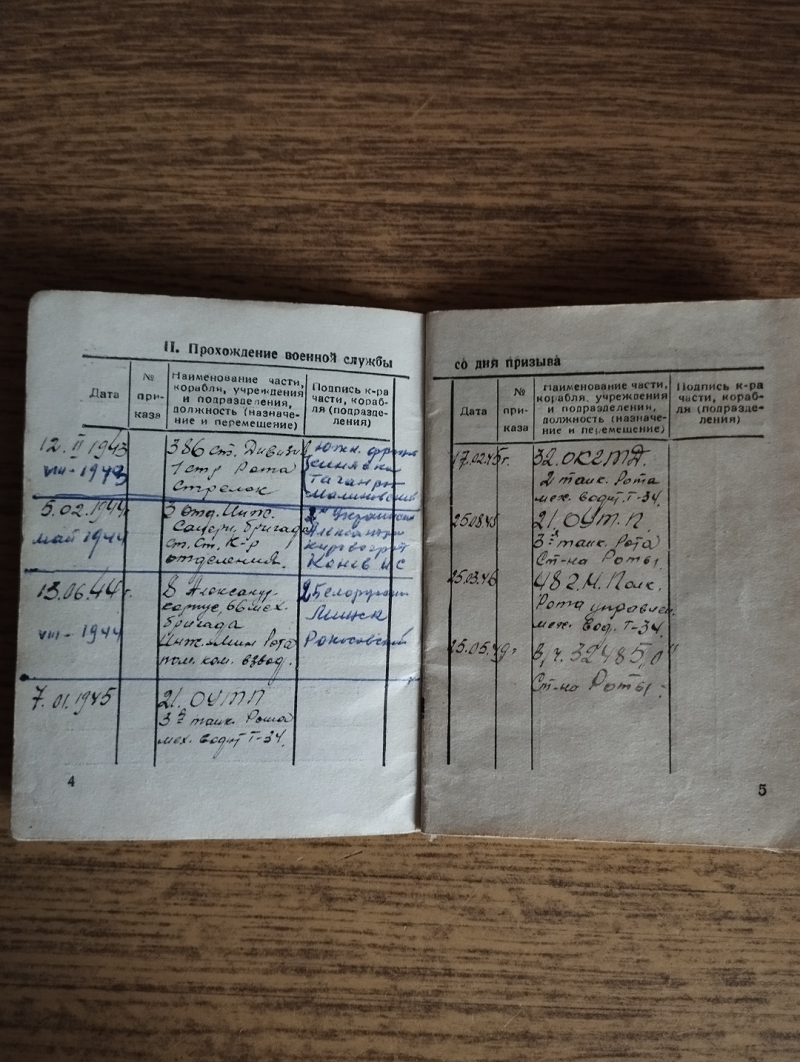 II. Прохождение военной службы
Дата
№ при-каза
Наименование части,
корабля, учреждения
и подразделения,
должность (назначе-
ние и перемещение)
Подпись к-ра
части, кораб-
ля (подразде-
ления)
12. II 1943
VIII - 1943
386 ст. Дивизи
1 стр Рота
Стрелок
Южн.
Таганрог
Малиновский
5.02.1944г
май 1944
3 отд. Инж.
Саперн. бригада
Ст. Ст. К-р
отделения.
2й
Конев ИС
13.06.44г.
VIII - 1944
8 Александр.
корпус, 66 мех.
бригада
Инж. Мин Рота
пом. ком. взвод.
Минск
Рокосовский
7.01.1945
21. ОУТП
3я танк. Рота
мех. водит Т-34.
4
со дня призыва
Дата
№ при-каза
Наименование части,
корабля, учреждения
и подразделения,
должность (назначе-
ние и перемещение)
Подпись к-ра
части, кораб-
ля (подразде-
ления)
17.02.45г.
32.
2 танк. Рота
мех. водит. Т-34.
25.08.45
21. ОУТ.П
3я танк. Рота
Ст-на Роты.
25.03.46
482.М.Полк.
Рота управлен.
мех. вод. Т-34.
25.05.49г
в/ч. 32485
Ст-на Роты.
5